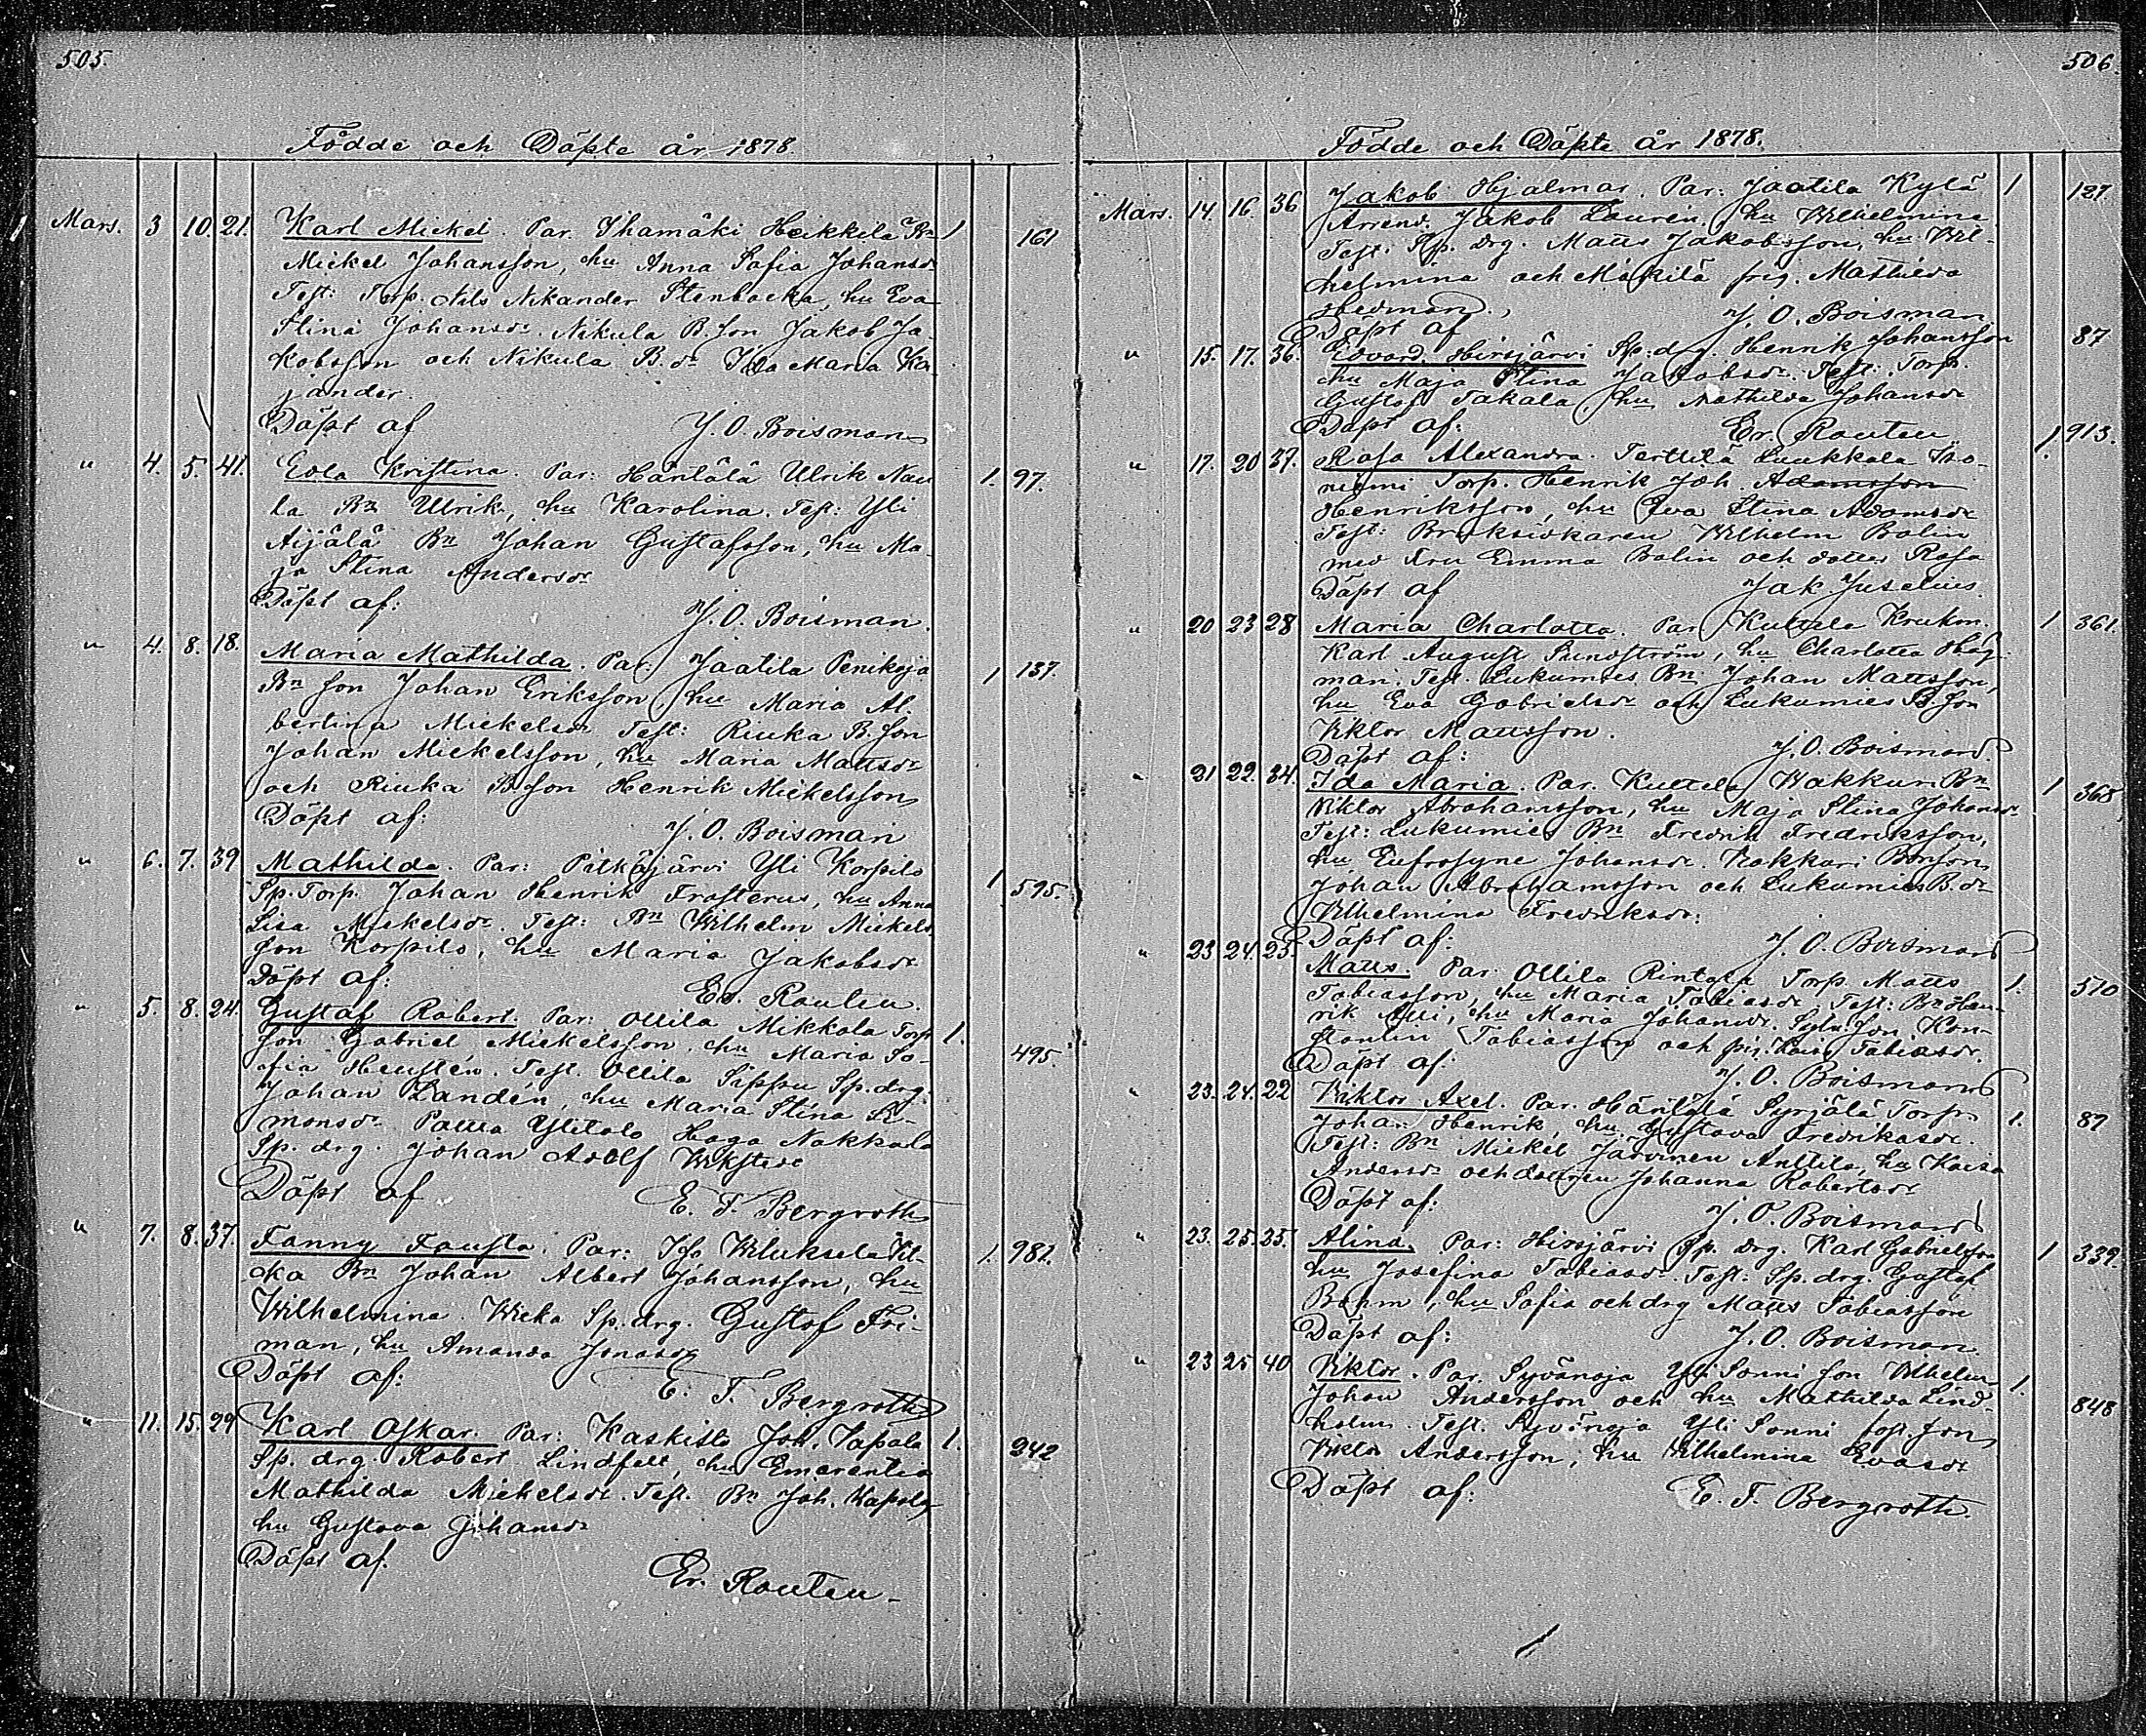 505.
Födde och Döpte år 1878.
Mars. 3 10. 21. Karl Mickel. Par. Ihamäki Heikkilä Bn 1 161
Mickel Johansson, hu Anna Sofia Johansdr
Test: Torp. Nils Nikander Stenbacka, hu Eva
Stina Johansdr. Nikula B. son Jakob Ja-
kobsson och Nikula B. dr Ida Maria Ka-
jander.
Döpt af J. O. Boisman
" 4. 5. 41. Eva Kristina. Par: Häntälä Ulrik Nau 1. 97.
la Bn Ulrik, hu Karolina. Test: Yli
Äijälä Bn Johan Gustafsson, hu Ma-
ja Stina Andersdr
Döpt af: J. O. Boisman.
" 4. 8. 18. Maria Mathilda. Par: Jaatila Penikoja 1 137.
Bn son Johan Eriksson hu Maria Al-
bertina Mickelsdr Test: Riuka B. son
Johan Mickelsson, hu Maria Mattsdr
och Riuka B son Henrik Mickelsson
Döpt af: J. O. Boisman
" 6. 7. 39 Mathilda. Par: Pitkäjärvi Yli Korpilo 1 595.
Sp. Torp. Johan Henrik Frosterus, hu Anna
Lisa Mickelsdr. Test: Bn Wilhelm Mickels-
son Korpilo, hu Maria Jakobsdr
Döpt af: Er. Rauten.
" 5. 8. 24. Gustaf Robert. Par: Ollila Mikkola Torp 1. 495.
son Gabriel Mickelsson, hu Maria So-
fia Heusten. Test. Ollila Sippu Sp. drg.
Johan Landén, hu Maria Stina Si-
monsdr Paua Ylitalo Haga Nakkala
Sp. drg. Johan Adolf Wikstedt
Döpt af E. F. Bergroth
" 7. 8. 37. Fanny Fausta. Par: Iso Wiluksela Wil- 1. 981.
ka Bn Johan Albert Johansson, hu
Wilhelmina. Wicka Sp. drg. Gustof Fri-
man, hu Amanda Jonasdr
Döpt af: E. F. Bergroth
" 11. 15. 29 Karl Oskar. Par: Kaskisto Joh. Vapala 1. 242
Sp. drg. Robert Lindfelt, hu Emerentia
Mathilda Mickelsdr. Test. Bn Joh. Wapola
hu Gustava Johansdr
Döpt af. Er. Rauten
506.
Födde och Döpte år 1878.
Mars. 14. 16. 36 Jakob Hjalmar. Par: Jaatila Kylä 1 127.
Arrend. Jakob Laurén, hu Wilhelmina
Test. Sp. drg. Matts Jakobsson, hu Wil-
helmina och Mäkilä pig. Mathilda
Hedman.
Döpt af J. O. Boisman
" 15. 17. 36. Edvard. Hirsjärvi Sp: drg. Henrik Johansson 87
hu Maja Stina Jakobsdr. Test: Torp.
Gustof Takala, hu Mathilda Johansdr
Döpt af: Er. Rauten
" 17. 20 37. Rosa Alexandra. Terttilä Luukkala Iso- 1. 913.
niemi Torp. Henrik Joh. Adamsson
Henriksson, hu Eva Stina Adamsdr
Test: Bruksidkaren Wilhelm Bolin
med Fru Emma Bolin och dotter Rosa
Döpt af Jak. Juselius.
" 20 23 28 Maria Charlotta. Par Kuttala Krukm. 1 361.
Karl August Sundström, hu Charlotta Hag-
man. Test. Lukumies Bn Johan Mattsson,
hu Eva Gabrielsdr och Lukumies B. son
Viktor Mattsson.
Döpt af: J. O. Boisman
" 21 22. 34. Ida Maria. Par. Kuttela Wakkuri Bn 1 368
Viktor Abrahamsson, hu Maja Stina Johansdr
Test: Lukumies Bn Fredrik Fredriksson,
hu Eufrosyne Johansdr. Wakkuri Bonson
Johan Abrahamsson och Lukumies B. dr
Wilhelmina Fredriksdr.
Döpt af: J. O. Boisman
" 23 24. 25. Matts. Par. Ollila Rintala Torp. Matts 1. 510
Tobiasson, hu Maria Tobiasdr. Test: Bn Hen-
rik Alli, hu Maria Johansdr. Sytn: son Kon-
stantin Tobiasson och pig. Kaisa Tobiasdr.
Döpt af: J. O. Boisman
" 23. 24. 22 Viktor Axel. Par. Häntälä Syrjälä Torp. 1. 87
Johan Henrik, hu Gustava Fredriksdr.
Test: Bn Mickel Järvinen Anttila, hu Kaisa
Andersdr och dottern Johanna Robertsdr
Döpt af: J. O. Boisman
" 23. 25. 25. Alina. Par: Hirsjärvi Sp. drg. Karl Gabrielsson 1 339.
hu Josefina Tobiasdr. Test: Sp. drg. Gustof
Bohm, hu Sofia och drg Matts Tobiasson
Döpt af: J. O. Boisman
" 23 25 40 Viktor. Par. Syvänoja Yli Sonni son Wilhelm 1. 848
Johan Andersson och hu Mathilda Lind-
holm. Test. Syvänoja Yli Sonni fost. son
Viktor Andersson, hu Wilhelmina Evasdr
Döpt af: E. F. Bergroth.